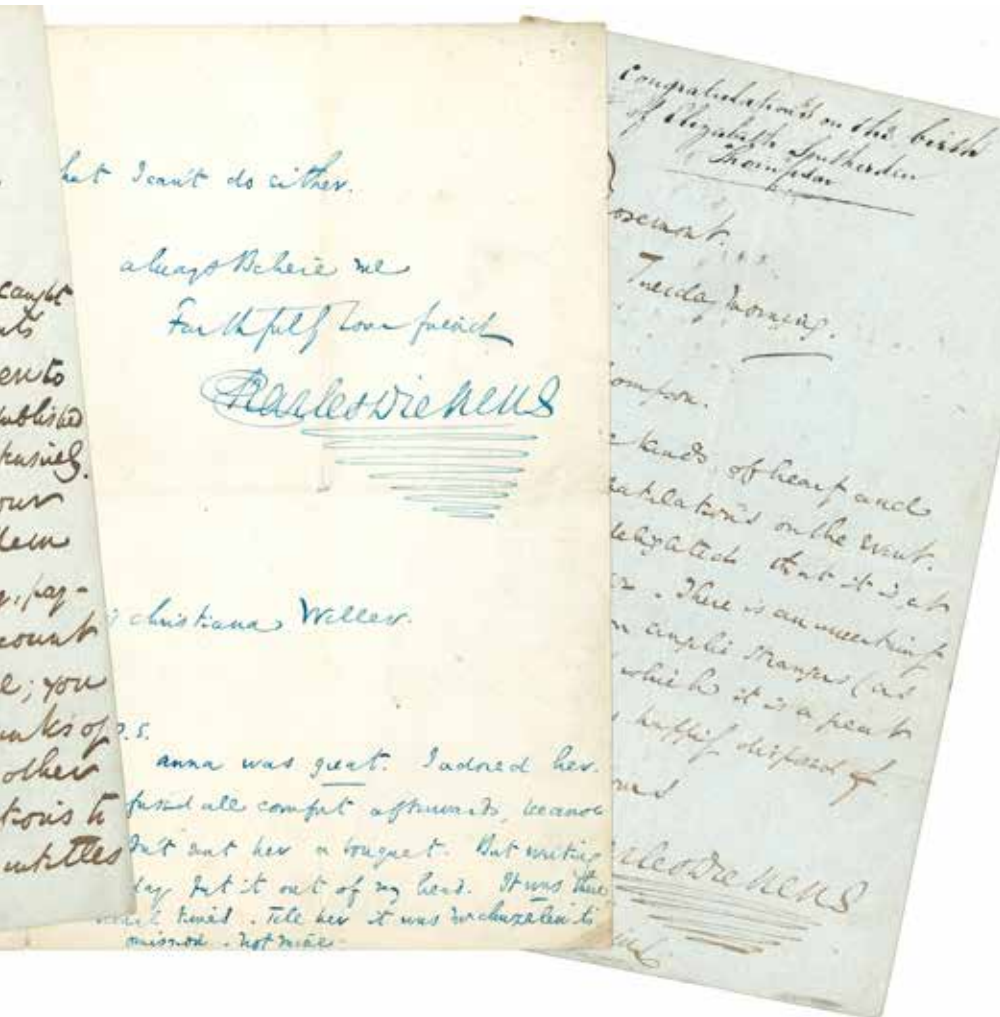 caught
en to
published
our
pay-
count
e; you
nks of
other
tions to
untitles
hat I can't do either.
always Believe me
Faithfully Your friend
Charles Dickens
Christiana Weller.
P.S.
Anna was great. I adored her.
fused all comfort afterwards, because
dn't sent her a bouquet. But writing
day put it out of my head. It was
Tell her it was
mission. Not mine
Congratulations on the birth
of Elizabeth Southerden
Thompson
Rosemont.
Tuesday Morning.
ompson.
kinds, of heart and
atulations on the event.
delighted that it is, at
There is an
on angelic strangers (as
which it is a great
happily disposed of.
Charles Dickens